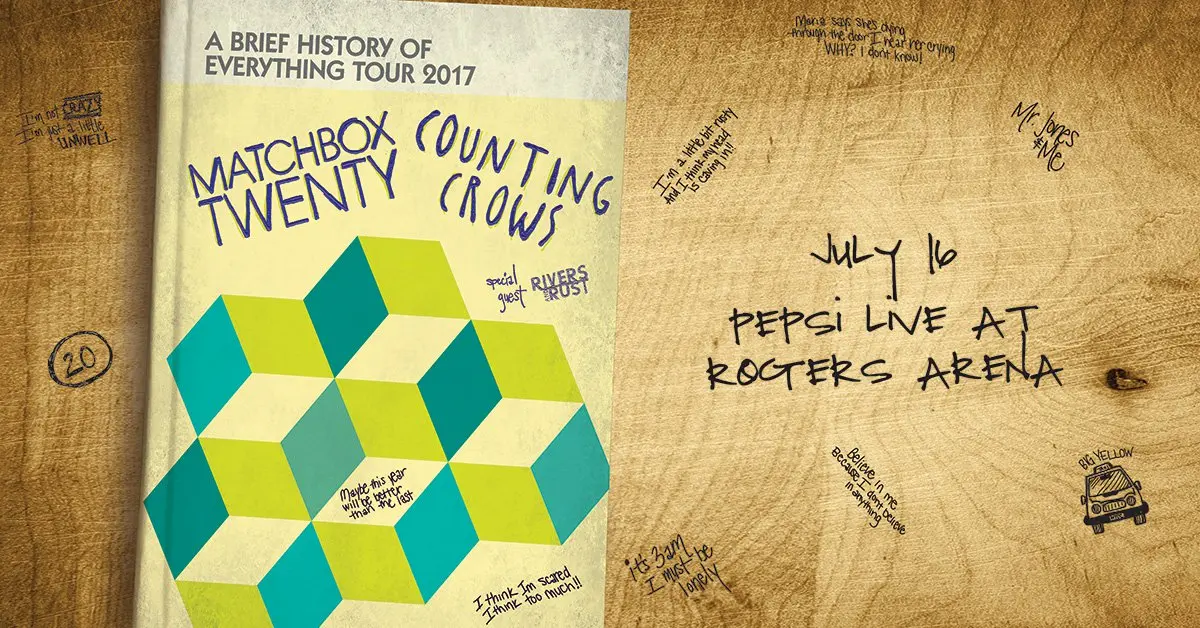 A BRIEF HISTORY OF
EVERYTHING TOUR 2017
MATCHBOX
TWENTY
COUNTING
CROWS
special
guest
RIVERS
AND
RUST
Maybe this year
will be better
than the last
I think Im scared
I think too much!!
I'm not CRAZY
I'm just a little
UNWELL
20
Maria says she's dying
through the door I hear her crying
WHY? I dont know!
I'm a little bit rusty
And I think my head
is caving in!!
Mr Jones
& Me
JULY 16
PEPSI LIVE AT
ROGERS ARENA
Believe in me
Because I dont believe
in anything
BIG YELLOW
it's 3am
I must be
lonely